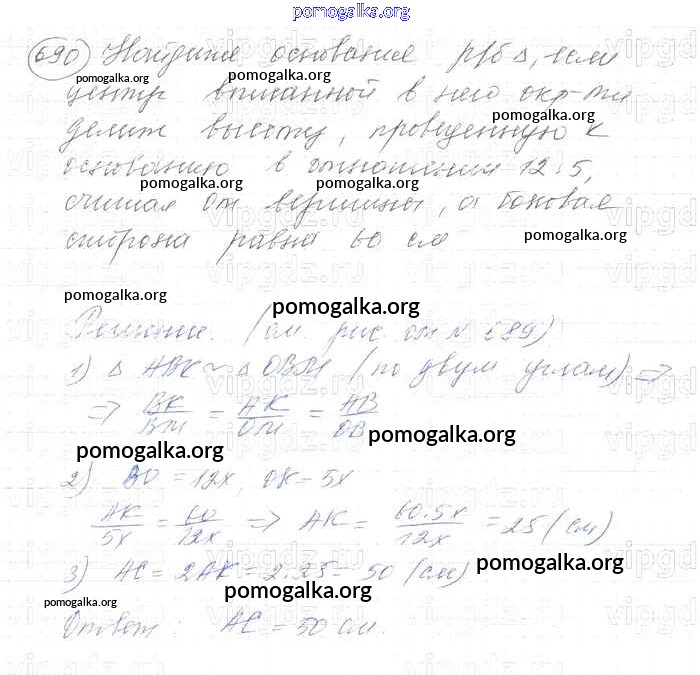 pomogalka.org
690 Найдите основание р/б Δ, если
pomogalka.org pomogalka.org
центр вписанной в него окр-ти
pomogalka.org
делит высоту, проведенную к
основанию в отношении 12:5,
pomogalka.org pomogalka.org
считая от вершины, а боковая
сторона равна 60 см
pomogalka.org
pomogalka.org
pomogalka.org
Решение. (см. рис от N 689)
1) Δ ABK ~ Δ OBM (по двум углам) =>
=> BK/BM = AK/OM = AB/OB
pomogalka.org
pomogalka.org
2) BO = 12x, OK = 5x
AK/5x = 60/12x => AK = 60·5x/12x = 25 (см)
pomogalka.org
3) AC = 2AK = 2·25 = 50 (см)
pomogalka.org
pomogalka.org
Ответ: AC = 50 см.